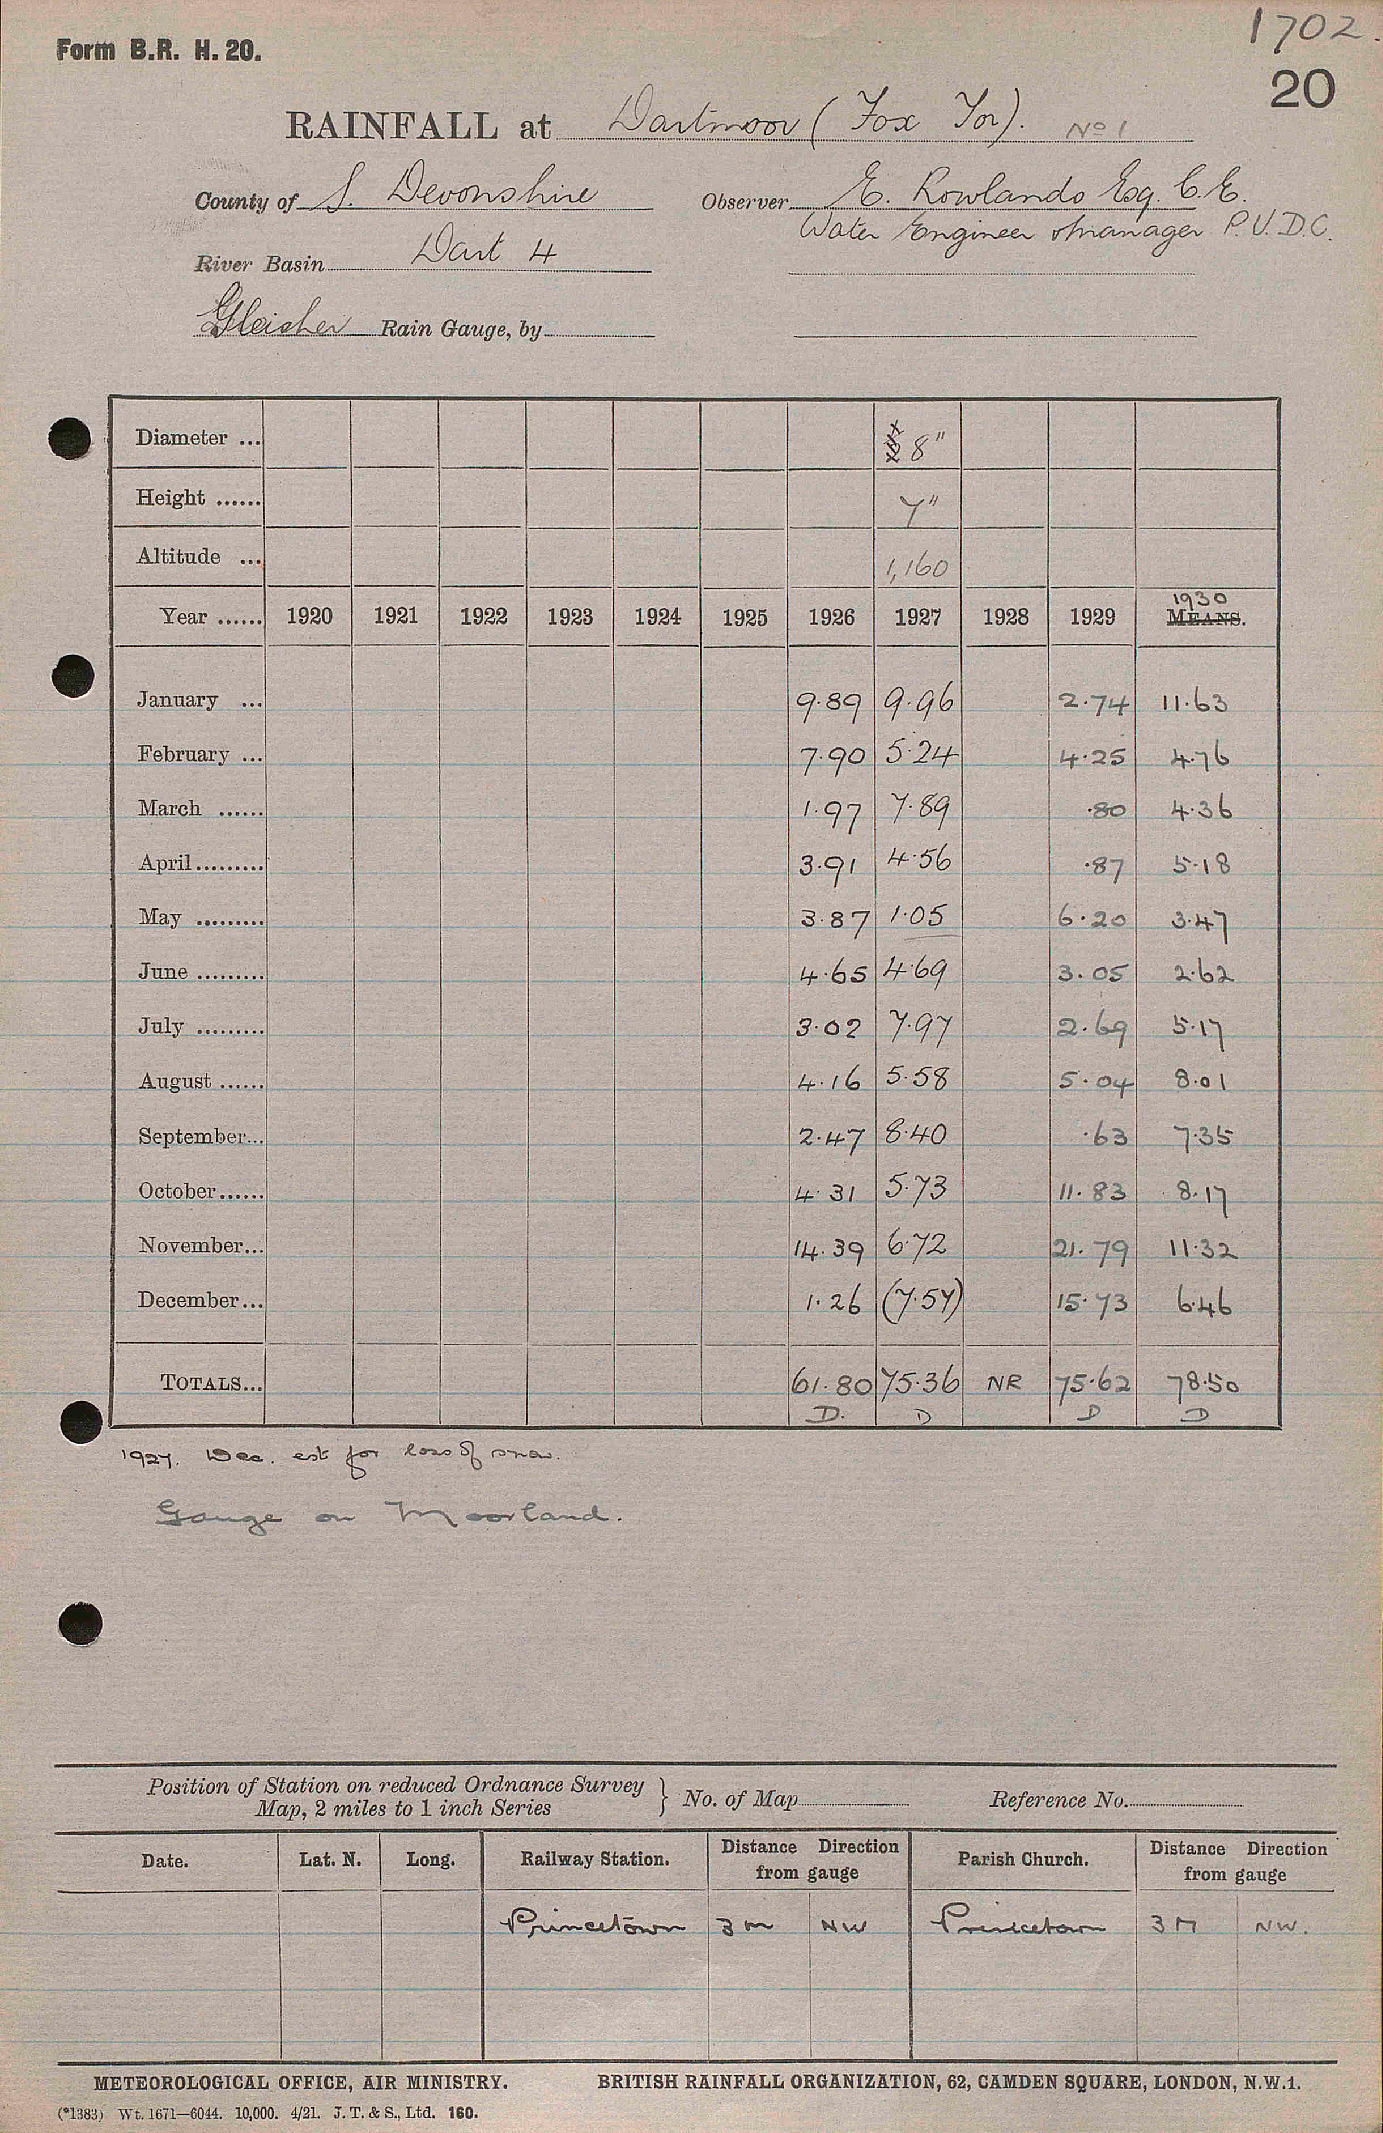 1702.
Form B.R. H. 20.
20
RAINFALL at Dartmoor (Fox Tor). No 1
County of S. Devonshire Observer E. Rowlands Esq. C.E.
Water Engineer & manager P.U.D.C.
River Basin Dart 4
Gleisher Rain Gauge, by
Diameter ... 8"
Height ...... 7"
Altitude ... 1,160
Year ...... 1920 1921 1922 1923 1924 1925 1926 1927 1928 1929 1930 MEANS.
January ... 9.89 9.96 2.74 11.63
February ... 7.90 5.24 4.25 4.76
March ...... 1.97 7.89 .80 4.36
April ......... 3.91 4.56 .87 5.18
May ......... 3.87 1.05 6.20 3.47
June ......... 4.65 4.69 3.05 2.62
July ......... 3.02 7.97 2.69 5.17
August ...... 4.16 5.58 5.04 8.01
September... 2.47 8.40 .63 7.35
October...... 4.31 5.73 11.83 8.17
November... 14.39 6.72 21.79 11.32
December... 1.26 (7.57) 15.73 6.46
TOTALS... 61.80 75.36 NR 75.62 78.50
D. D D D
1927. Dec. est for loss of snow.
Gauge on Moorland.
Position of Station on reduced Ordnance Survey
Map, 2 miles to 1 inch Series } No. of Map Reference No.
Date. Lat. N. Long. Railway Station. Distance Direction from gauge Parish Church. Distance Direction from gauge
Princetown 3 m NW Princetown 3 M NW.
METEOROLOGICAL OFFICE, AIR MINISTRY. BRITISH RAINFALL ORGANIZATION, 62, CAMDEN SQUARE, LONDON, N.W.1.
(*1383) Wt. 1671—6044. 10,000. 4/21. J. T. & S., Ltd. 160.